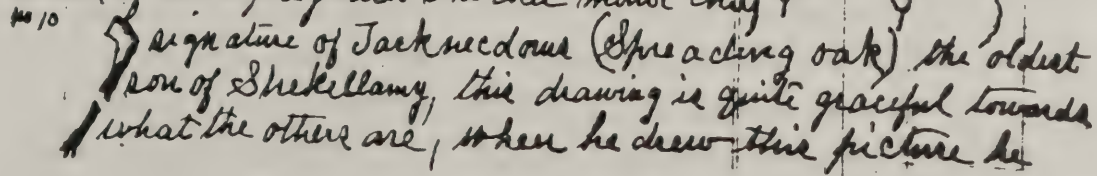 No 10
signature of Jacknecdous (Spreading oak) the oldest
son of Shekellamy, this drawing is quite graceful towards
what the others are, when he drew this picture he